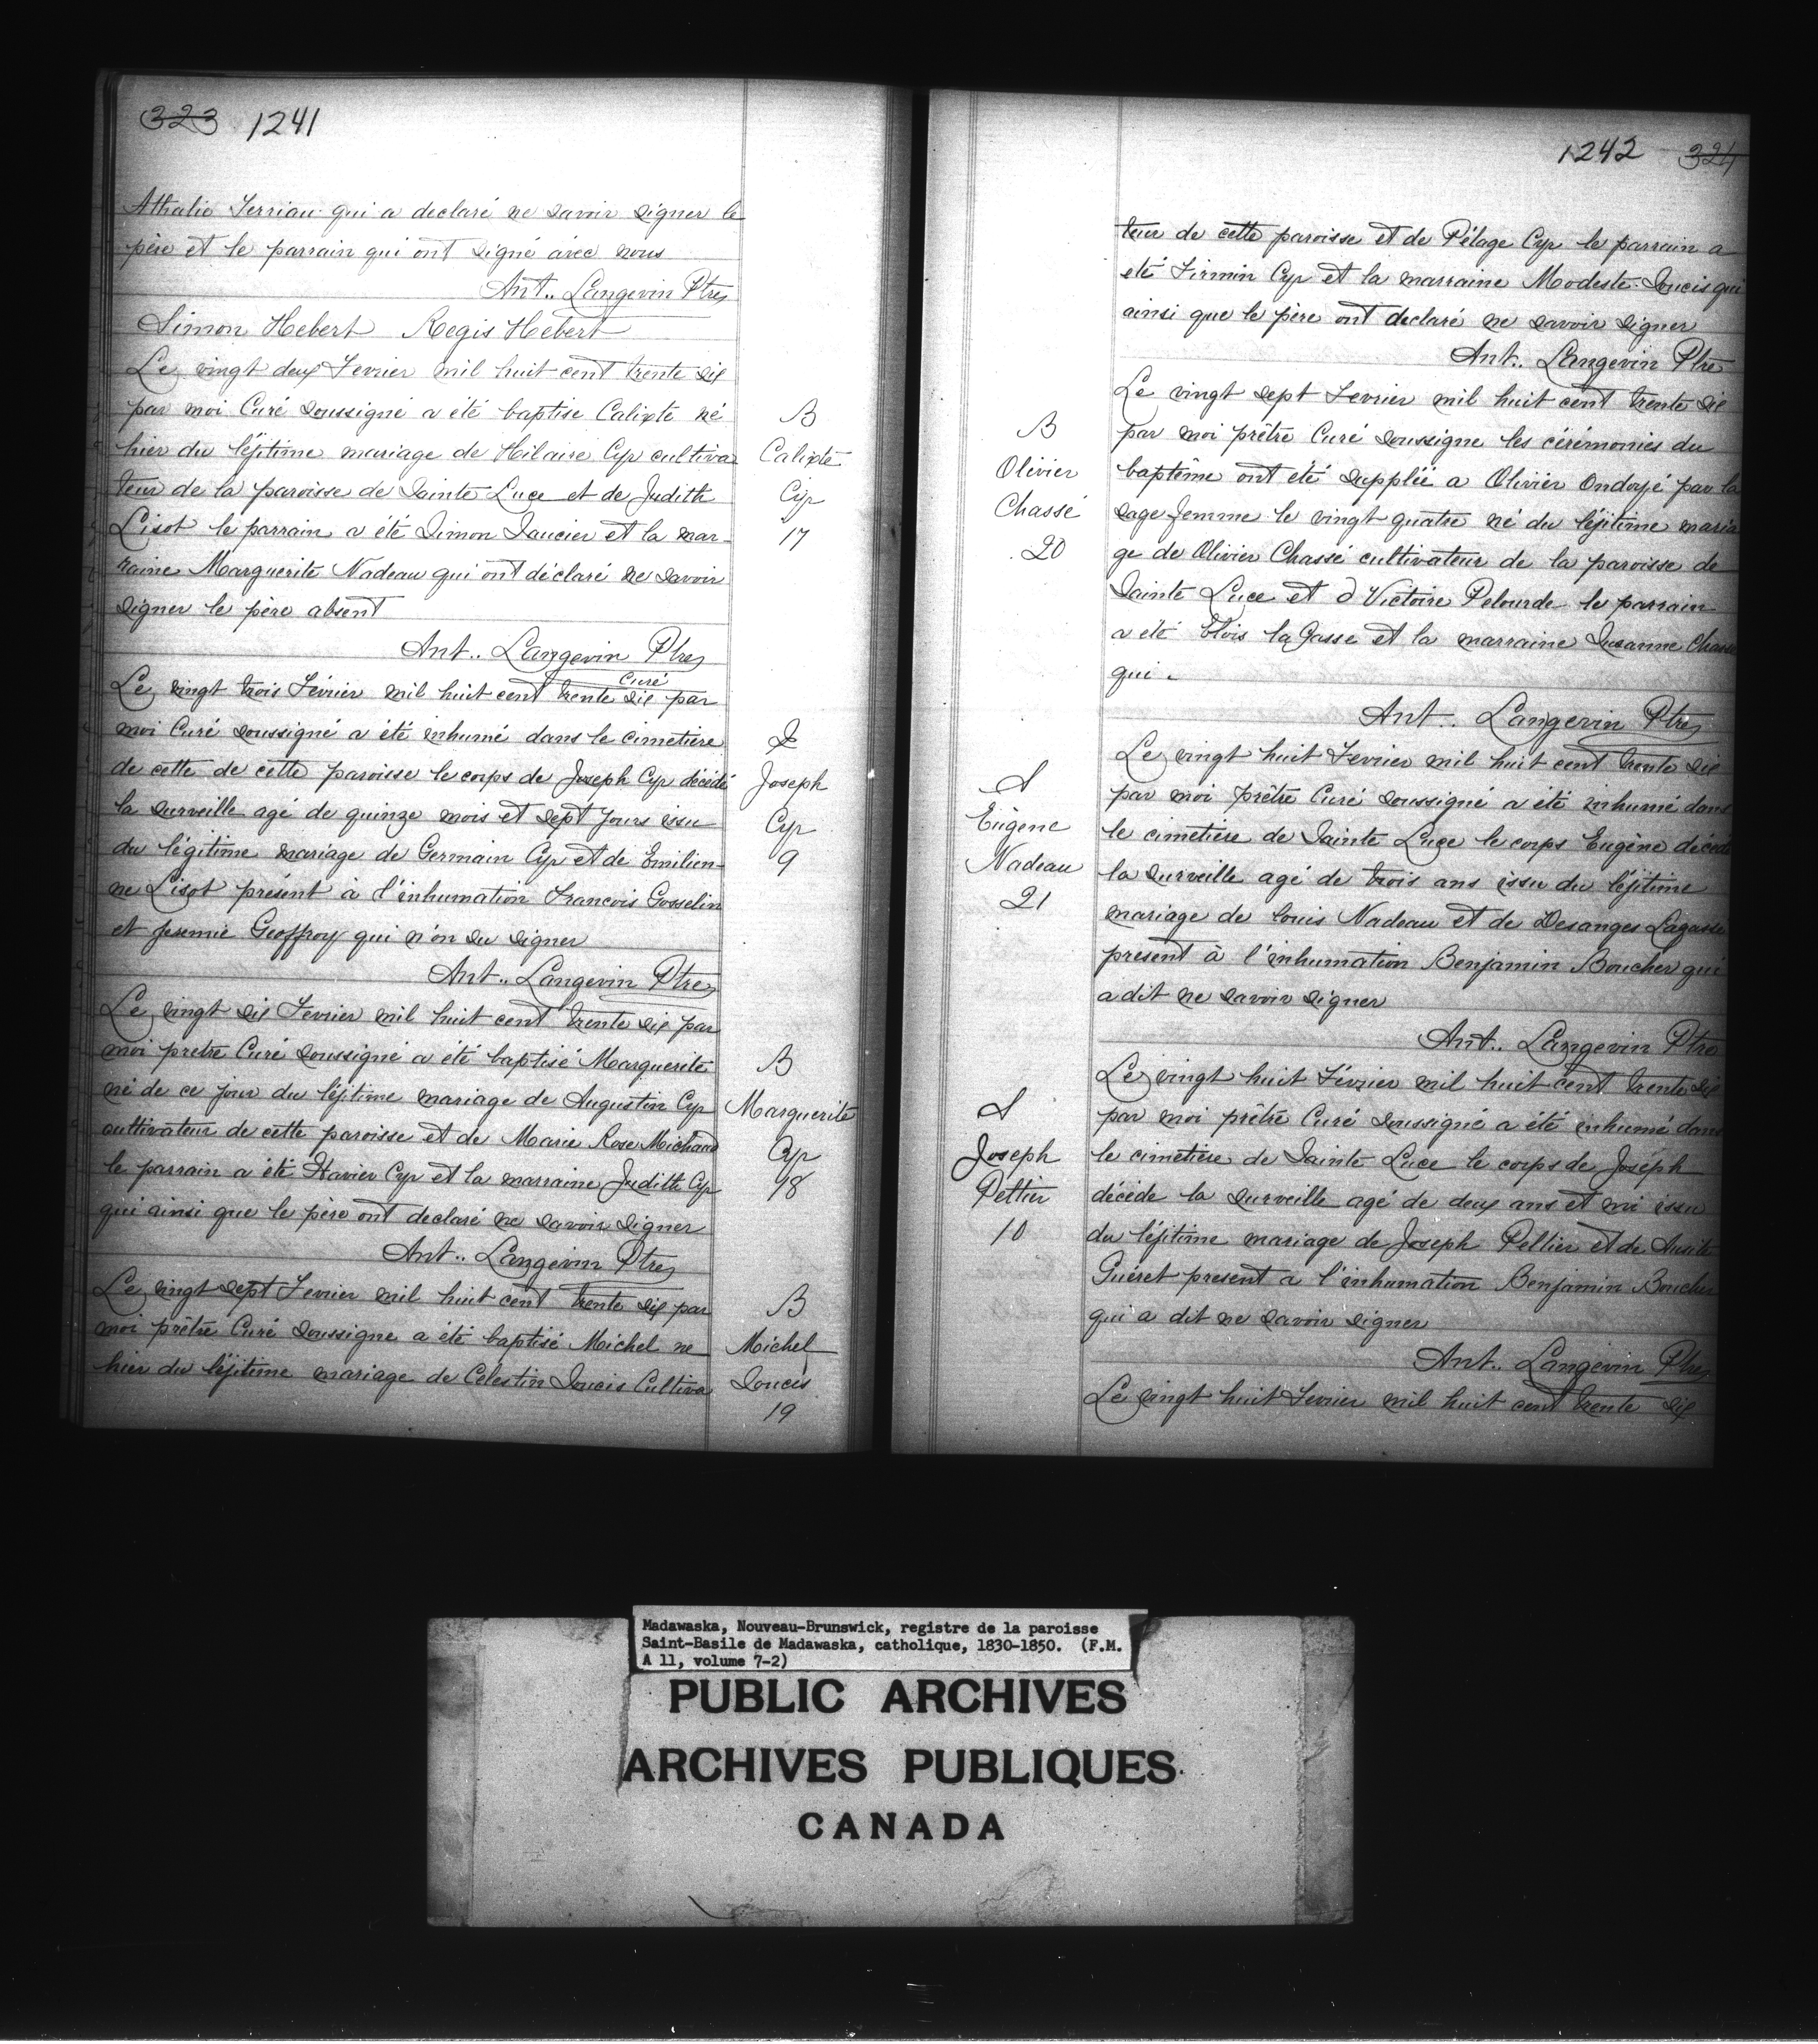 323 1241
Athalie Terriau qui a declaré ne savoir signer le
père et le parrain qui ont signé avec nous
Ant.. Langevin Ptre
Simon Hebert Regis Hebert
Le vingt deux Fevrier mil huit cent trente six
par moi Curé soussigné a été baptise Calixte né
hier du léjitime mariage de Hilaire Cyr cultiva
teur de la paroisse de Sainte Luce et de Judith
Lisot le parrain a été Simon Saucier et la mar-
raine Marguerite Nadeau qui ont déclaré ne savoir
signer le père absent
Ant.. Langevin Ptre
Curé
B
Calixte
Cyr
17
Le vingt trois Février mil huit cent trente six par
moi Curé soussigné a été inhumé dans le cimetiere
de cette de cette paroisse le corps de Joseph Cyr décédé
la surveille agé de quinze mois et sept jours issu
du légitime mariage de Germain Cyr et de Emilien-
ne Lisot présent à l'inhumation Francois Gosselin
et jeremie Geoffroy qui n'on su signer
Ant.. Langevin Ptre
S
Joseph
Cyr
9
Le vingt six Fevrier mil huit cent trente six par
moi pretre Curé soussigné a été baptisé Marguerite
né de ce jour du léjitime mariage de Augustin Cyr
cultivateur de cette paroisse et de Marie Rose Michaud
le parrain a été Xavier Cyr et la marraine Judith Cyr
qui ainsi que le père ont declaré ne savoir signer
Ant.. Langevin Ptre
B
Marguerite
Cyr
18
Le vingt sept Fevrier mil huit cent trente six par
moi prêtre Curé soussigne a été baptisé Michel ne
hier du léjitime mariage de Celestin Soucis Cultiva
B
Michel
Soucis
19
1242 324
teur de cette paroisse et de Pélage Cyr le parrain a
eté Firmin Cyr et la marraine Modeste Soucis qui
ainsi que le père ont declaré ne savoir signer
Ant.. Langevin Ptre
Le vingt sept Fevrier mil huit cent trente six
par moi prêtre Curé soussigne les cérémonies du
baptême ont été supplié a Olivier Ondoyé par la
sage femme le vingt quatre né du léjitime maria
ge de Olivier Chassé cultivateur de la paroisse de
Sainte Luce et d Victoire Pelourde le parrain
a été Elois la Gasse et la marraine Susanne Chassé
qui .
Ant.. Langevin Ptre
B
Olivier
Chassé
20
Le vingt huit Fevrier mil huit cent trente six
par moi prêtre Curé soussigné a été inhumé dans
le cimetière de Sainte Luce le corps Eugène décédé
la surveille agé de trois ans issu du léjitime
mariage de Louis Nadeau et de Desanges Lagasse
present à l'inhumation Benjamin Boucher qui
a dit ne savoir signer
Ant.. Langevin Ptre
S
Eugène
Nadeau
21
Le vingt huit Février mil huit cent trente six
par moi prêtre Curé soussigné a été inhumé dans
le cimetière de Sainte Luce le corps de Joseph
décède la surveille agé de deux ans et mi issu
du léjitime mariage de Joseph Pellier et de Ausite
Guéret present a l'inhumation Benjamin Boucher
qui a dit ne savoir signer
Ant.. Langevin Ptre
S
Joseph
Peltier
10
Le vingt huit Fevrier mil huit cent trente six
Madawaska, Nouveau-Brunswick, registre de la paroisse
Saint-Basile de Madawaska, catholique, 1830-1850. (F.M.
A 11, volume 7-2)
PUBLIC ARCHIVES
ARCHIVES PUBLIQUES
CANADA